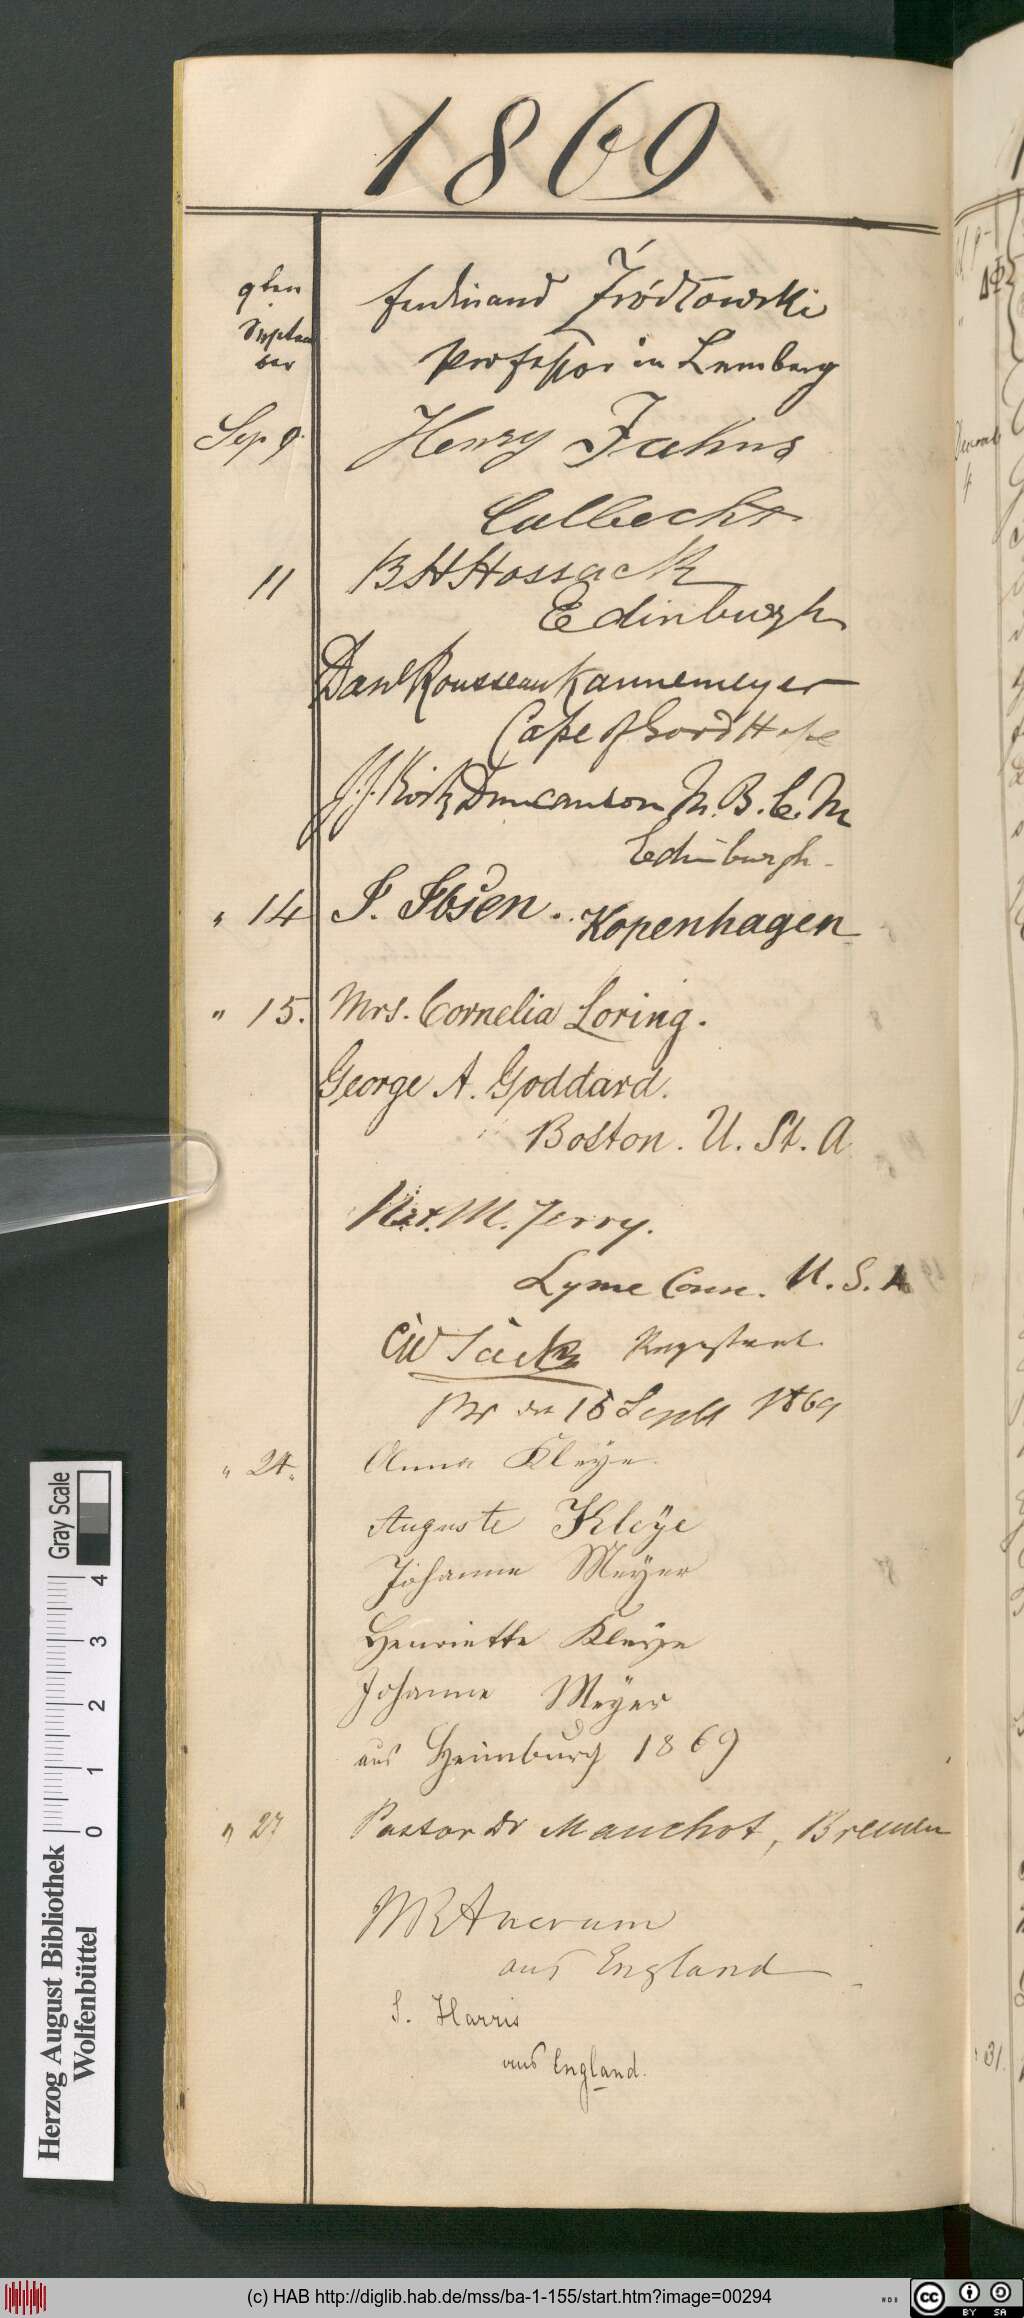 1869
9ten Septem ber
ferdinand Źródłowski
professor in Lemberg
Sep 9. Henry Jahns
Calbecht
11 B H Hossack
Edinburgh
Danl Rousseau Kannemeyer
Cape of Good Hope
J. J. Kirk Duncanson M. B. C. M
Edinburgh.
" 14 I. Ibsen. Kopenhagen
" 15. Mrs. Cornelia Loring.
George A. Goddard.
Boston. U. St. A
M. Terry.
Lyme Conn. U. S. A
CW Sack
15 Septb 1869
" 24. Anna Kleye.
Auguste Kleÿe
Johanne Meyer
Henriette Kleye
Johanne Meyer
aus Heimburg 1869
" 27 Pastor Dr Manchot, Bremen
Ancrum
aus England
S. Harris
aus England.
Herzog August Bibliothek
Wolfenbüttel
0 1 2 3 4
Gray Scale
31.
(c) HAB http://diglib.hab.de/mss/ba-1-155/start.htm?image=00294
cc BY SA